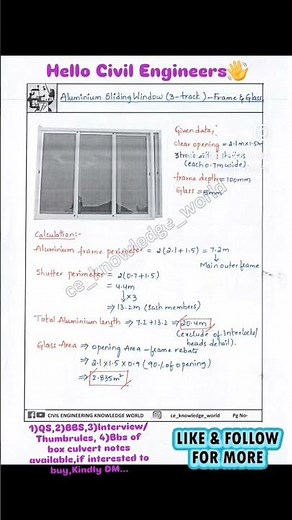 Hello Civil Engineers👋
Aluminium Sliding Window (3-track) - Frame & Glass
Given data;
clear opening = 2.1m x 1.5m
3 track with 3 shutters
(each 0.7m wide)
frame depth = 100mm
Glass = 5mm
Calculation:-
Aluminium frame perimeter = 2(2.1+1.5) = 7.2m
Main outer frame
Shutter perimeter = 2(0.7+1.5)
= 4.4m
x3
⇒ 13.2m (sash members)
Total Aluminium length ⇒ 7.2+13.2 ⇒ 20.4m
(exclude of Interlocks/
beads detail).
Glass Area ⇒ opening Area - frame rebate
⇒ 2.1 x 1.5 x 0.9 (90% of opening)
⇒ 2.835m²
ce_knowledge_world
CIVIL ENGINEERING KNOWLEDGE WORLD ce_knowledge_world Pg No-
1)QS,2)BBS,3)Interview/
Thumbrules, 4)Bbs of
box culvert notes
available,if interested to
buy,Kindly DM...
LIKE & FOLLOW
FOR MORE